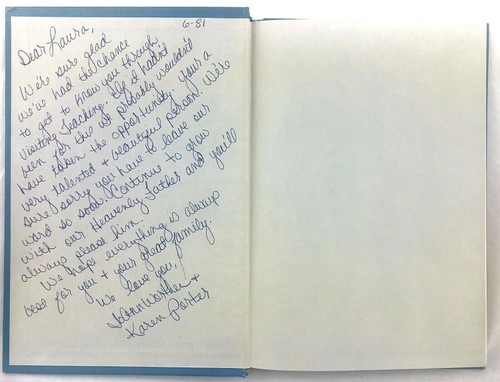 6-81
Dear Laura,
We're sure glad
we've had the chance
to get to know you through
Visiting Teaching. If it hadn't
been for this we probably wouldn't
have taken the opportunity. Your a
very talented + beautiful person. We're
sure sorry you have to leave our
ward so soon. Continue to grow
with our Heavenly Father and you'll
always please him.
We hope everything is always
best for you + your great family.
We love you,
JoAnn Worthen +
Karen Porter